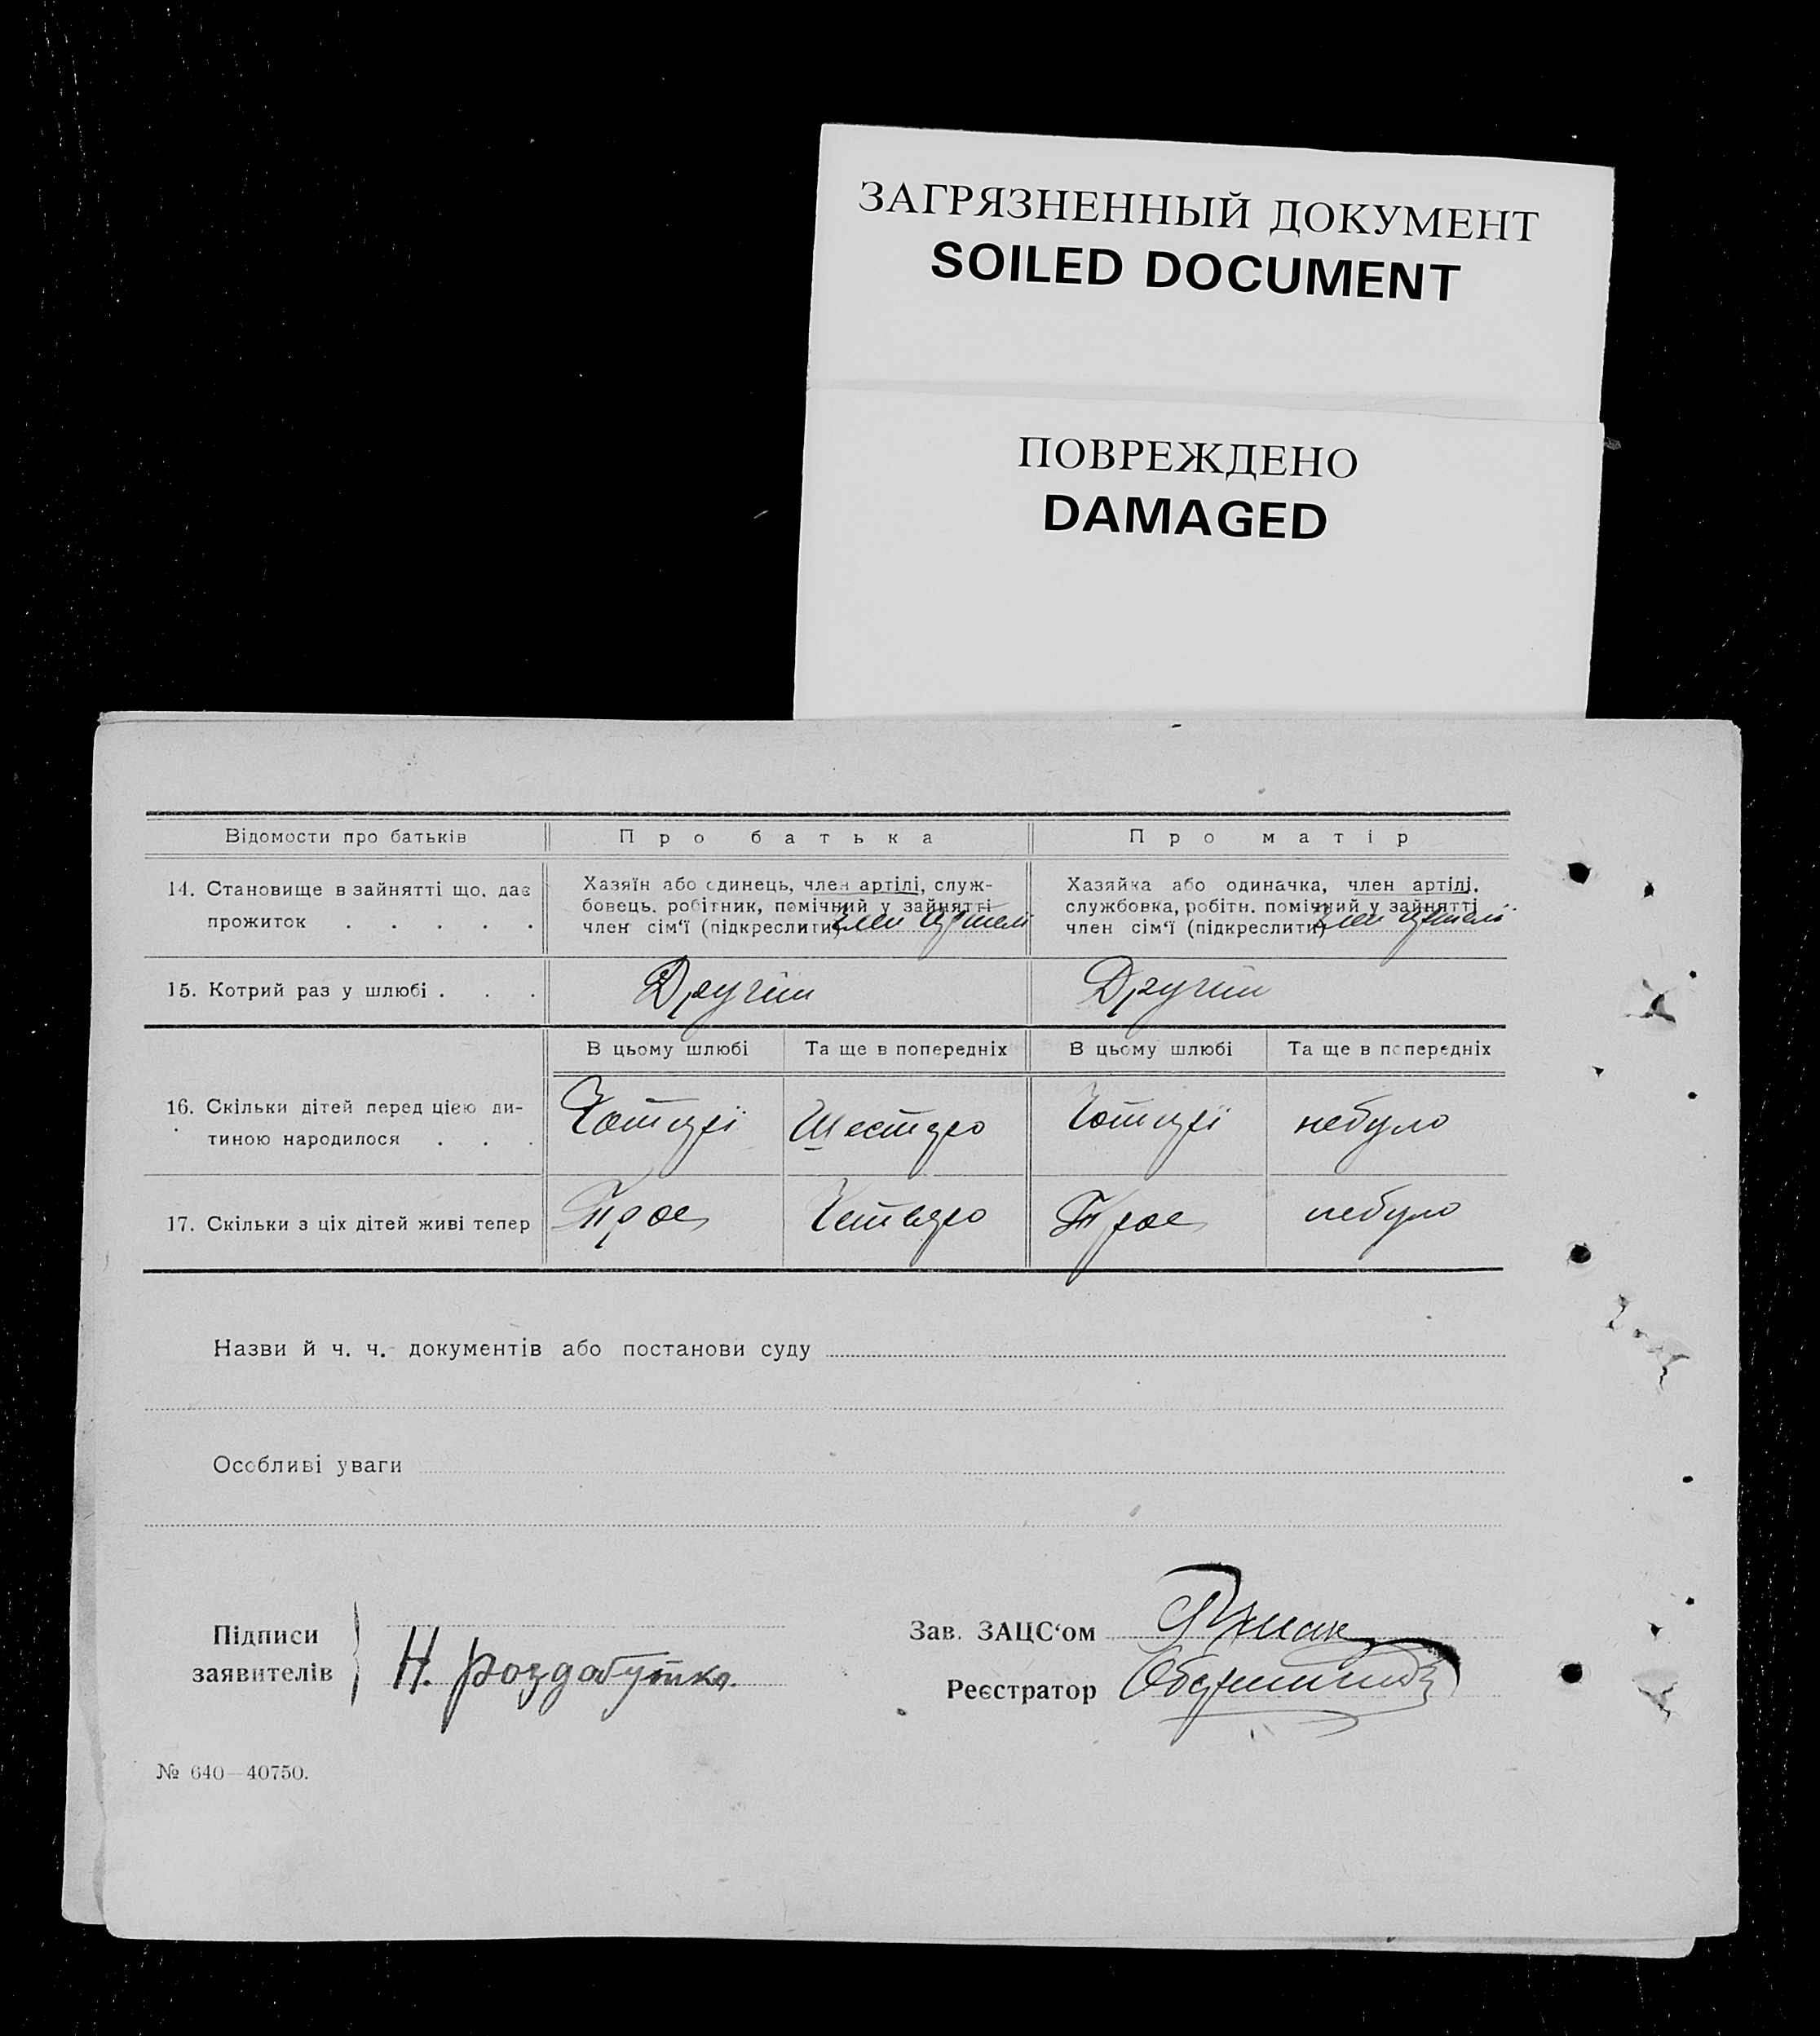 ЗАГРЯЗНЕННЫЙ ДОКУМЕНТ
SOILED DOCUMENT
ПОВРЕЖДЕНО
DAMAGED
Відомости про батьків Про батька Про матір
14. Становище в зайнятті що, дає
прожиток . . . . .
Хазяїн або єдинець, член артілі, служ-
бовець. робітник, помічний у зайнятті
член сім‘ї (підкреслити) член артелі
Хазяйка або одиначка, член артілі,
службовка, робітн. помічний у зайнятті
член сім‘ї (підкреслити) член артелі
15. Котрий раз у шлюбі . . . Другий Другий
В цьому шлюбі Та ще в попередніх В цьому шлюбі Та ще в попередніх
16. Скільки дітей перед цією ди-
тиною народилося . . .
Чотирі Шестеро Чотирі небуло
17. Скільки з ціх дітей живі тепер Троє Четверо Троє небуло
Назви й ч. ч. документів або постанови суду
Особливі уваги
Підписи
заявителів
Н. роздобутко.
Зав. ЗАЦС‘ом
Реєстратор
№ 640—40750.